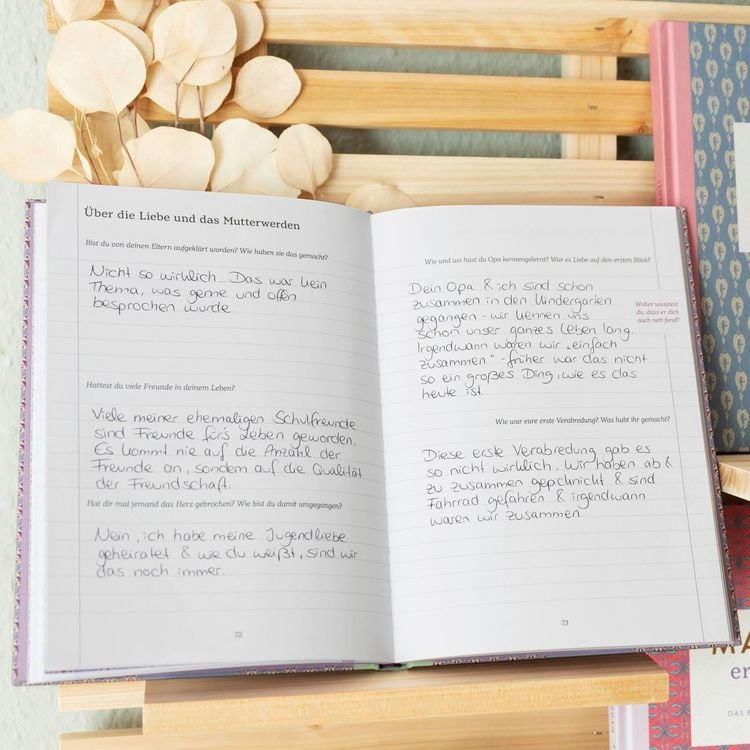 Über die Liebe und das Mutterwerden
Bist du von deinen Eltern aufgeklärt worden? Wie haben sie das gemacht?
Nicht so wirklich... Das war kein
Thema, was gerne und offen
besprochen wurde.
Hattest du viele Freunde in deinem Leben?
Viele meiner ehemaligen Schulfreunde
sind Freunde für's Leben geworden.
Es kommt nie auf die Anzahl der
Freunde an, sondern auf die Qualität
der Freundschaft.
Hat dir mal jemand das Herz gebrochen? Wie bist du damit umgegangen?
Nein, ich habe meine Jugendliebe
geheiratet & wie du weißt, sind wir
das noch immer.
72
Wie und wo hast du Opa kennengelernt? War es Liebe auf den ersten Blick?
Dein Opa & ich sind schon
zusammen in den Kindergarten
gegangen - wir kennen uns
schon unser ganzes Leben lang.
Irgendwann waren wir „einfach
zusammen" - früher war das nicht
so ein großes Ding, wie es das
heute ist.
Woher wusstest
du, dass er dich
auch nett fand?
Wie war eure erste Verabredung? Was habt ihr gemacht?
Diese erste Verabredung gab es
so nicht wirklich. Wir haben ab &
zu zusammen gepicknickt & sind
Fahrrad gefahren & irgendwann
waren wir zusammen.
73
MA
er
DAS E